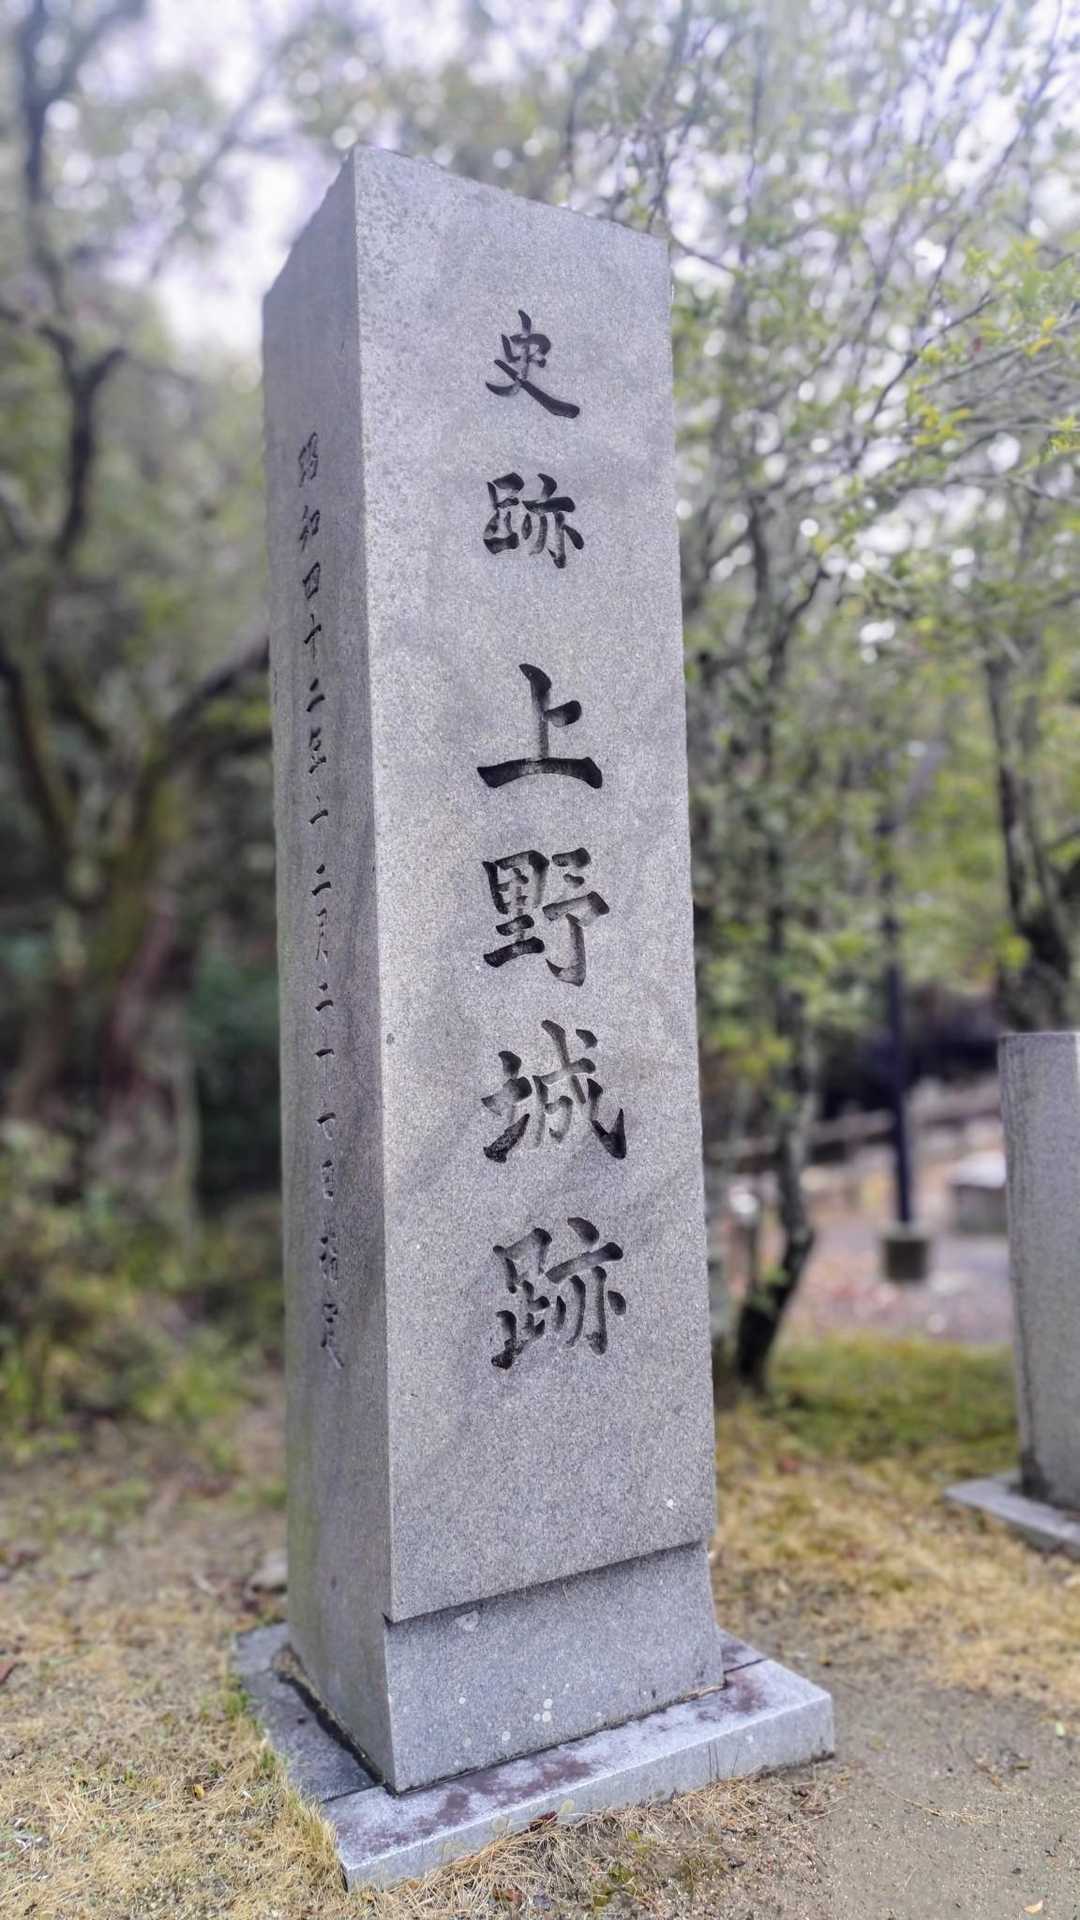 史跡 上野城跡
昭和四十二年十二月二十七日指定